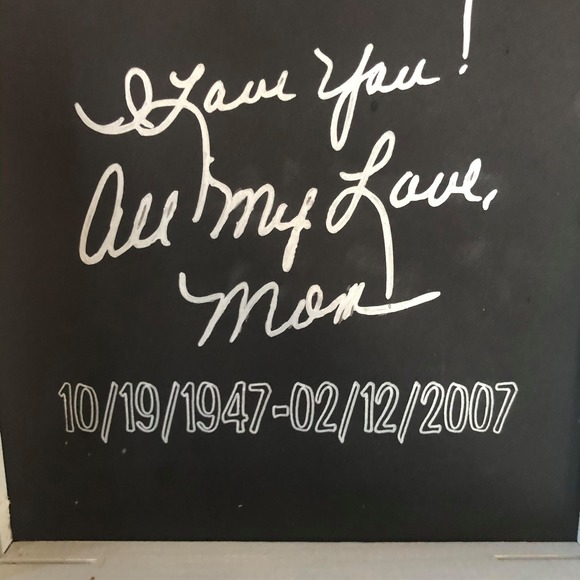 I Love You!
All My Love,
Mom
10/19/1947-02/12/2007